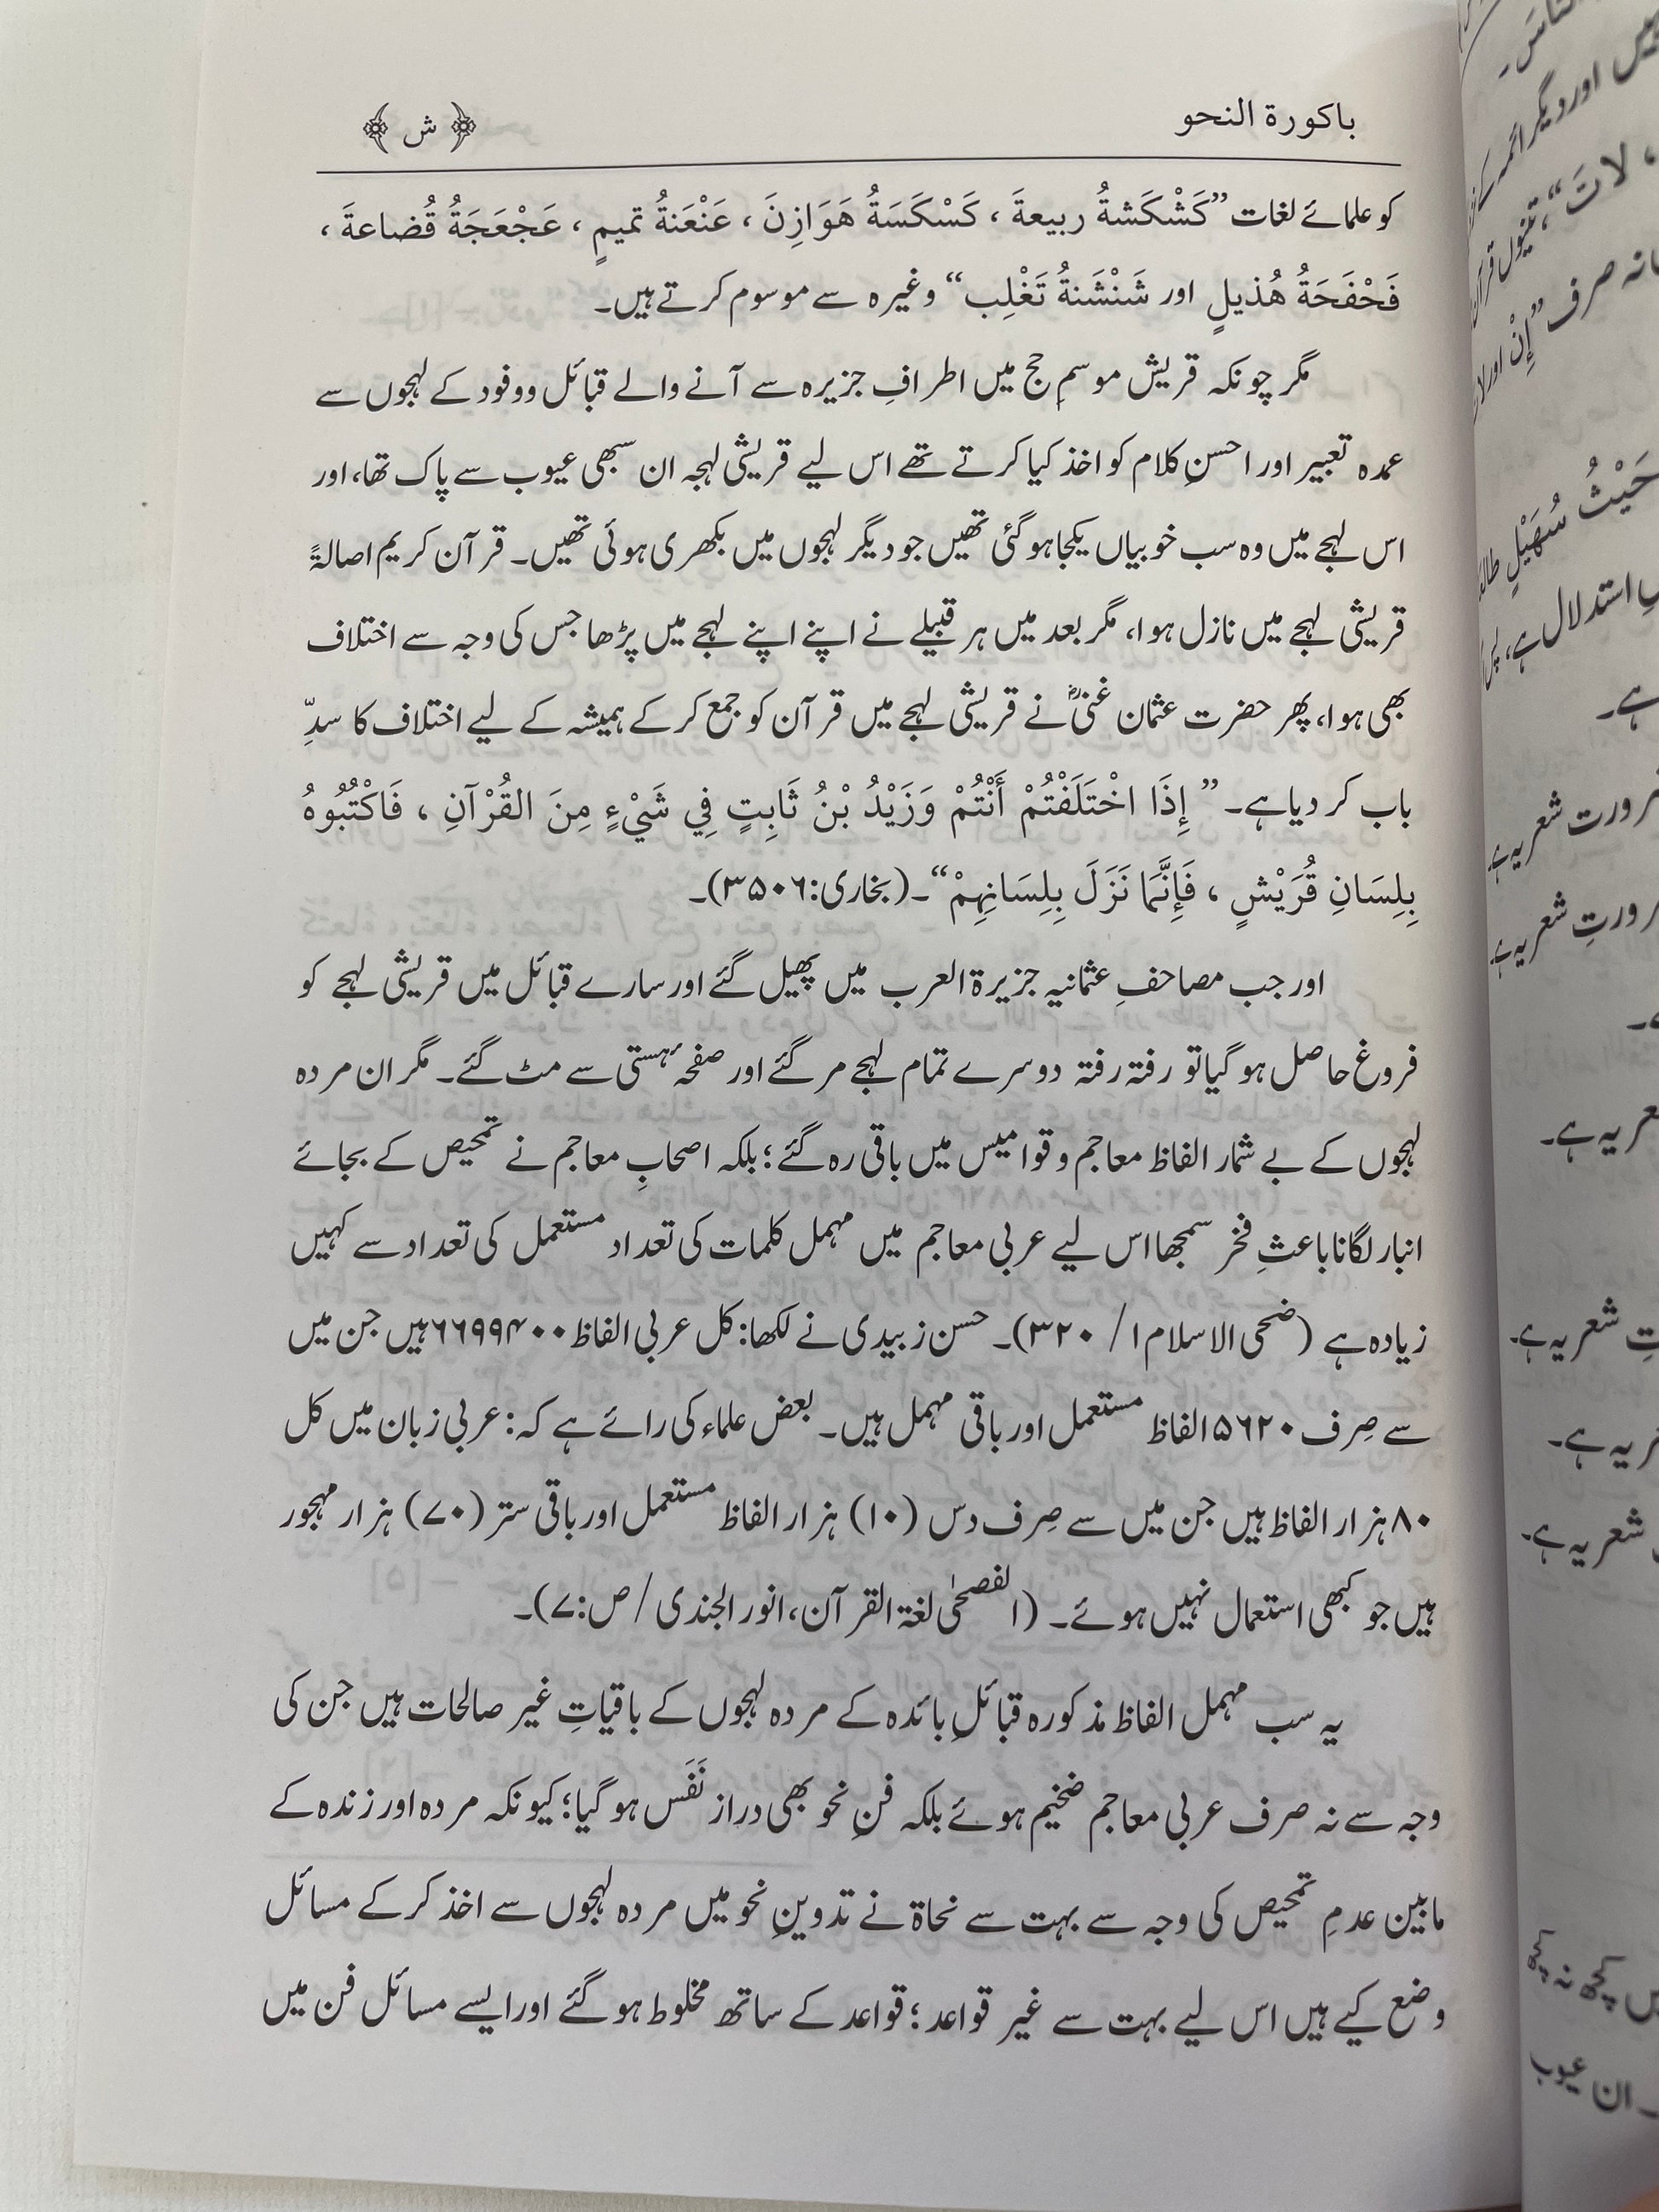 باكورة النحو ﴿ ش ﴾
کو علمائے لغات ”كَشْكَشةُ ربيعةَ ، كَسْكَسَةُ هَوَازِنَ ، عَنْعَنةُ تميمٍ ، عَجْعَجَةُ قُضاعةَ ،
فَحْفَحَةُ هُذيلٍ اور شَنْشَنةُ تَغْلِب“ وغیرہ سے موسوم کرتے ہیں۔
مگر چونکہ قریش موسمِ حج میں اطرافِ جزیرہ سے آنے والے قبائل ووفود کے لہجوں سے
عمدہ تعبیر اور احسنِ کلام کو اخذ کیا کرتے تھے اس لیے قریشی لہجہ ان سبھی عیوب سے پاک تھا، اور
اس لہجے میں وہ سب خوبیاں یکجا ہوگئی تھیں جو دیگر لہجوں میں بکھری ہوئی تھیں۔ قرآن کریم اصالۃً
قریشی لہجے میں نازل ہوا، مگر بعد میں ہر قبیلے نے اپنے اپنے لہجے میں پڑھا جس کی وجہ سے اختلاف
بھی ہوا، پھر حضرت عثمان غنیؓ نے قریشی لہجے میں قرآن کو جمع کرکے ہمیشہ کے لیے اختلاف کا سدِّ
باب کر دیا ہے۔ ” إِذَا اخْتَلَفْتُمْ أَنْتُمْ وَزَيْدُ بْنُ ثَابِتٍ فِي شَيْءٍ مِنَ القُرْآنِ ، فَاكْتُبُوهُ
بِلِسَانِ قُرَيْشٍ ، فَإِنَّمَا نَزَلَ بِلِسَانِهِمْ“۔(بخاری:۳۵۰۶)۔
اور جب مصاحفِ عثمانیہ جزیرۃ العرب میں پھیل گئے اور سارے قبائل میں قریشی لہجے کو
فروغ حاصل ہوگیا تو رفتہ رفتہ دوسرے تمام لہجے مرگئے اور صفحۂ ہستی سے مٹ گئے۔ مگر ان مردہ
لہجوں کے بے شمار الفاظ معاجم وقوامیس میں باقی رہ گئے؛ بلکہ اصحابِ معاجم نے تمحیص کے بجائے
انبار لگانا باعثِ فخر سمجھا اس لیے عربی معاجم میں مہمل کلمات کی تعداد مستعمل کی تعداد سے کہیں
زیادہ ہے (ضحی الاسلام۱/ ۳۲۰)۔ حسن زبیدی نے لکھا: کل عربی الفاظ ۶۶۹۹۴۰۰ ہیں جن میں
سے صِرف ۵۶۲۰ الفاظ مستعمل اور باقی مہمل ہیں۔ بعض علماء کی رائے ہے کہ: عربی زبان میں کل
۸۰ ہزار الفاظ ہیں جن میں سے صِرف دس (۱۰) ہزار الفاظ مستعمل اور باقی ستر (۷۰) ہزار مہجور
ہیں جو کبھی استعمال نہیں ہوئے۔ (الفصحٰی لغۃ القرآن، انور الجندی/ ص:۷)۔
یہ سب مہمل الفاظ مذکورہ قبائلِ بائدہ کے مردہ لہجوں کے باقیاتِ غیر صالحات ہیں جن کی
وجہ سے نہ صرف عربی معاجم ضخیم ہوئے بلکہ فنِ نحو بھی دراز نَفَس ہوگیا؛ کیونکہ مردہ اور زندہ کے
مابین عدمِ تمحیص کی وجہ سے بہت سے نحاۃ نے تدوینِ نحو میں مردہ لہجوں سے اخذ کرکے مسائل
وضع کیے ہیں اس لیے بہت سے غیر قواعد؛ قواعد کے ساتھ مخلوط ہوگئے اور ایسے مسائل فن میں